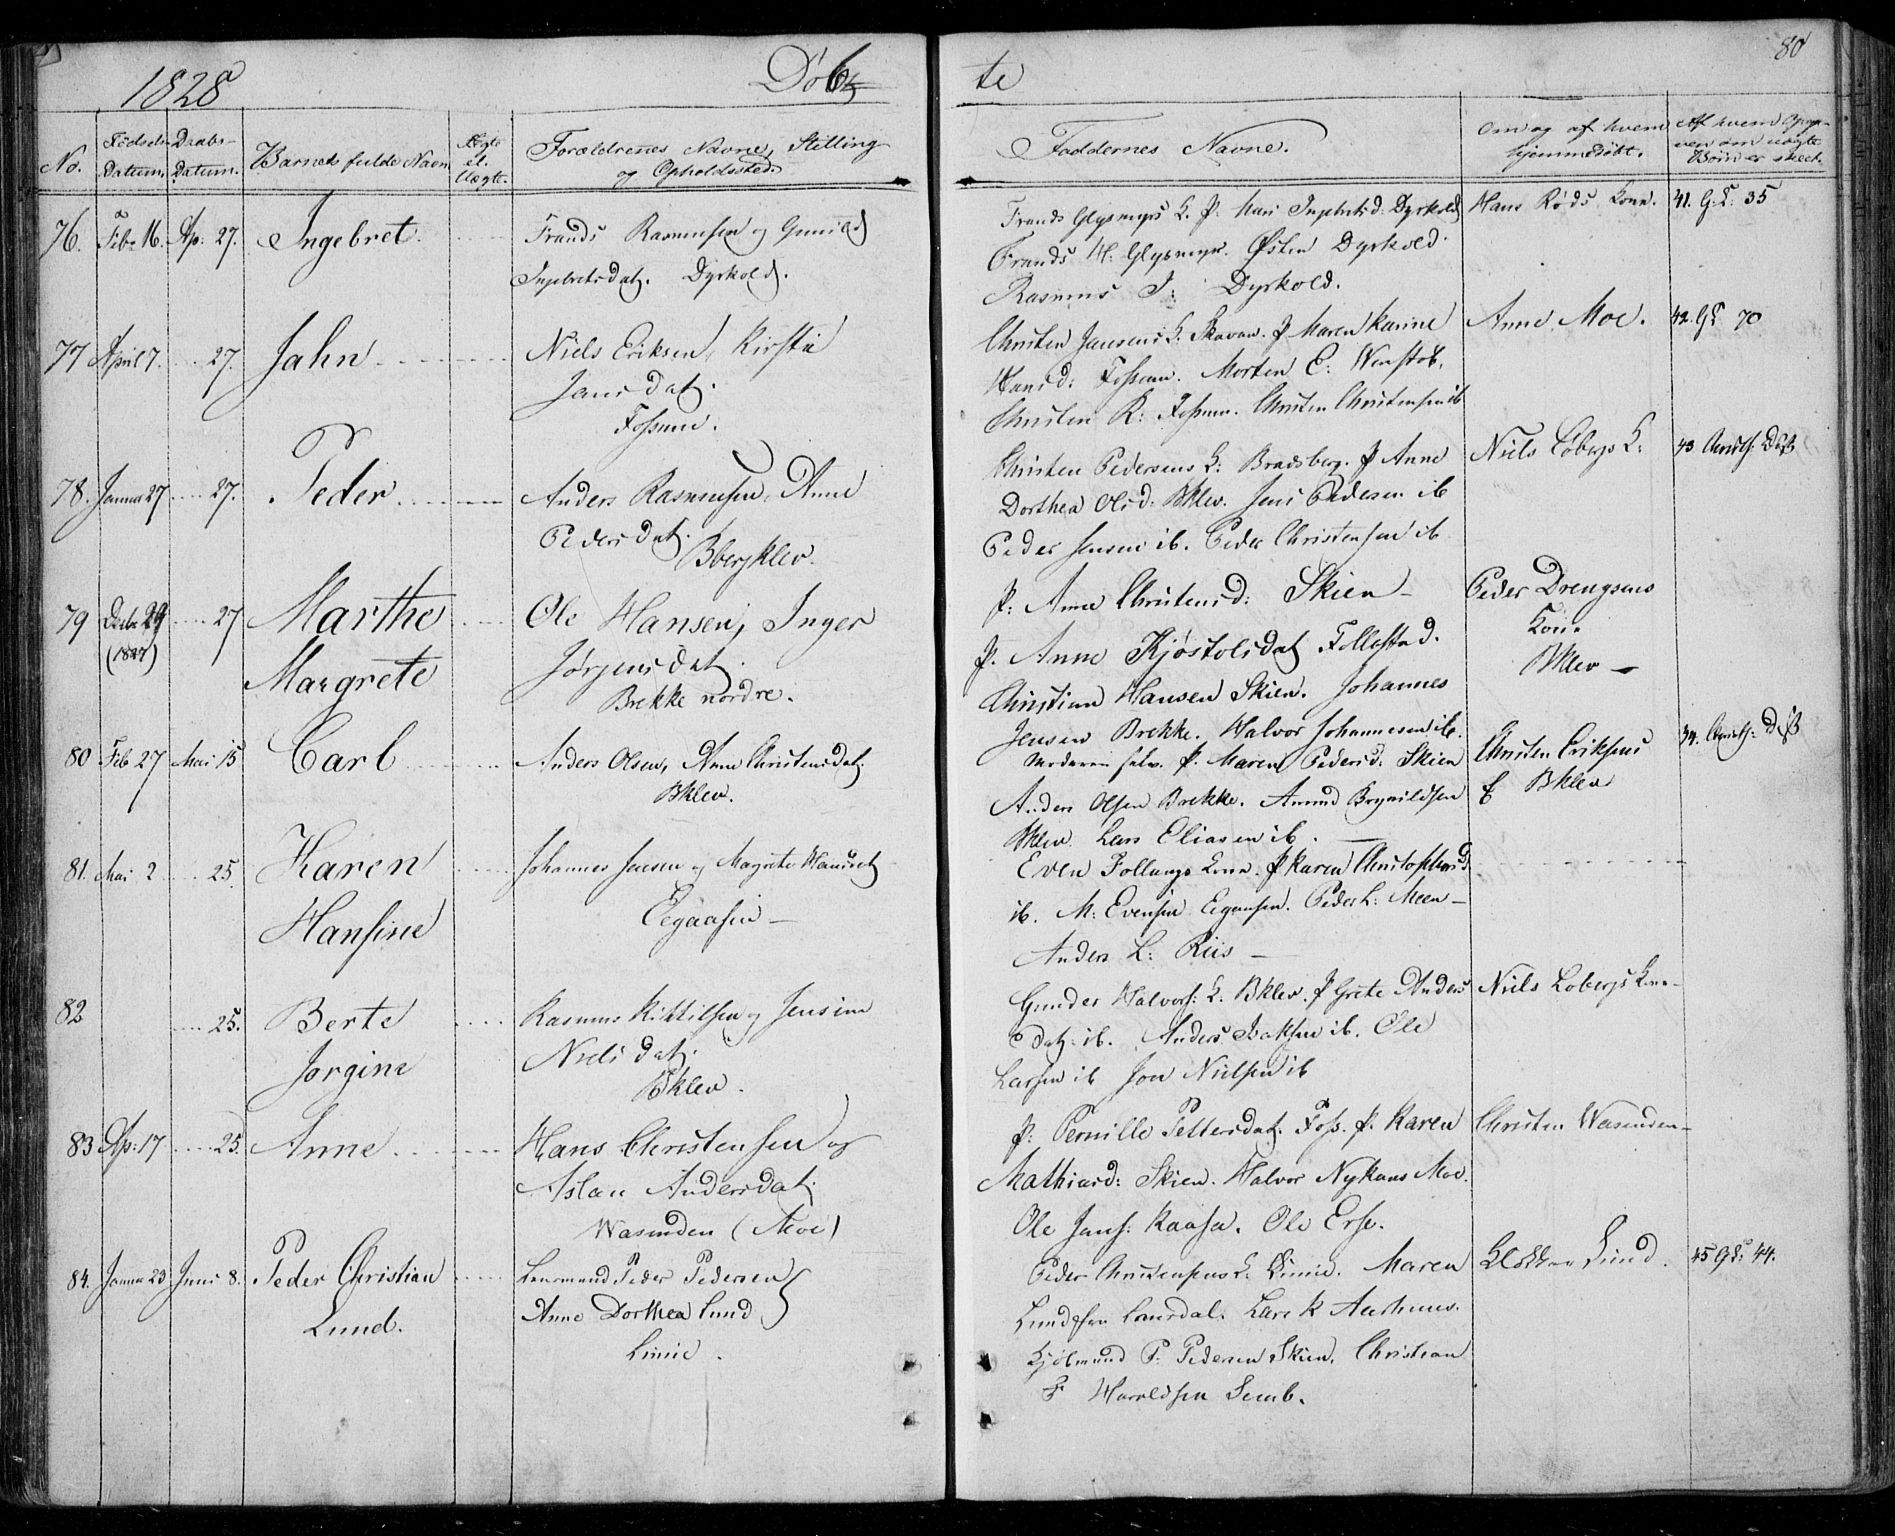 1828
Døb
te
80
No.
Fødsels Datum.
Daabs- Datum.
Barnets fulde Navn
Ægte el. Uægte.
Forældrenes Navne, Stilling og Opholdssted.
Faddernes Navne.
Om og af hvem hjemmedøbt.
Af hvem Opgaven om uægte Børn er skeet.
76. Feb. 16. Ap. 27. Ingebret. Frands Rasmussen og Gunild
Ingebretsdat. Dyrkold.
Frands Glysmyrs K. P. Mari Ingebretsd. Dyrkold
Frands H. Glysmyr. Østen Dyrkold.
Rasmus J. Dyrkold.
Hans Røds Kone. 41. G. L. 35
77 April 7. 27. Jahn Niels Eriksen, Kirstie
Jansdat.
Fossum.
Christen Jansens K. Skavan. P Maren Karine
Hansd. Fossum. Morten E. Wenstøb.
Christen R. Fossum. Christen Christensen ib
Anne Moe. 42. GL 70
78. Januar 27 27. Peder Anders Rasmussen, Anne
Pedersdat.
Bbergklev.
Christen Pedersens K. Bradsberg. P Anne
Dorthea Olsd. Bklev. Jens Pedersen ib
Peder Jensen ib. Peder Christensen ib
Niels Løbergs K.
43
79 29 (1827) 27 Marthe Margrete
Ole Hansen, Inger
Jørgensdat.
Brekke nordre.
P. Anne Christensd. Skien
P. Anne Kjøstolsdat Follestad.
Christian Hansen Skien. Johannes
Jensen Brekke. Halvor Johannesen ib.
Peder Drengsens
Kone
Bklev
80 Feb 27 Mai 15 Carl Anders Olsen, Anne Christensdat.
Bklev.
Moderen selv. P. Maren Pedersd. Skien
Anders Olsen Brekke. Amund Brynildsen
Bklev Lars Eliasen ib.
Christen Eriksens
Bklev
81. Mai 2 25. Karen Hansine
Johannes Jensen og Magrete Hansdt
Even Follaugs Kone. P Karen Christophersd
ib. M. Evensen Peder L. Meen
Anders L. Riis
82 25. Berte Jørgine
Rasmus Kittilsen og Jensine
Nielsdat.
Bklev.
Gunder Halvors. K. Bklev. P Grete Anders
dat. ib. Anders Isaksen ib. Ole
Larsen ib Jon Nielsen ib
Niels Løbergs Kone
83 Ap. 17 25. Anne Hans Christensen og
Aslau Andersdat.
Wasenden (Moe)
P. Pernille Pettersdat. Foss. P. Karen
Mathiasd. Skien. Halvor Nykaas Moe.
Ole Jans. Kaasa. Ole
Christen Wasenden
84. Januar 23 Juni 8. Peder Christian Lund.
Lensmand Peder Pedersen
Anne Dorthea Lund
Limie.
Peder Christensens K. Limie. Maren
Lund Lars K Aarhuus.
Kjøbmand P. Pedersen Skien. Christian
F Haraldsen Semb.
Klokker Lund. 45 GL. 44.